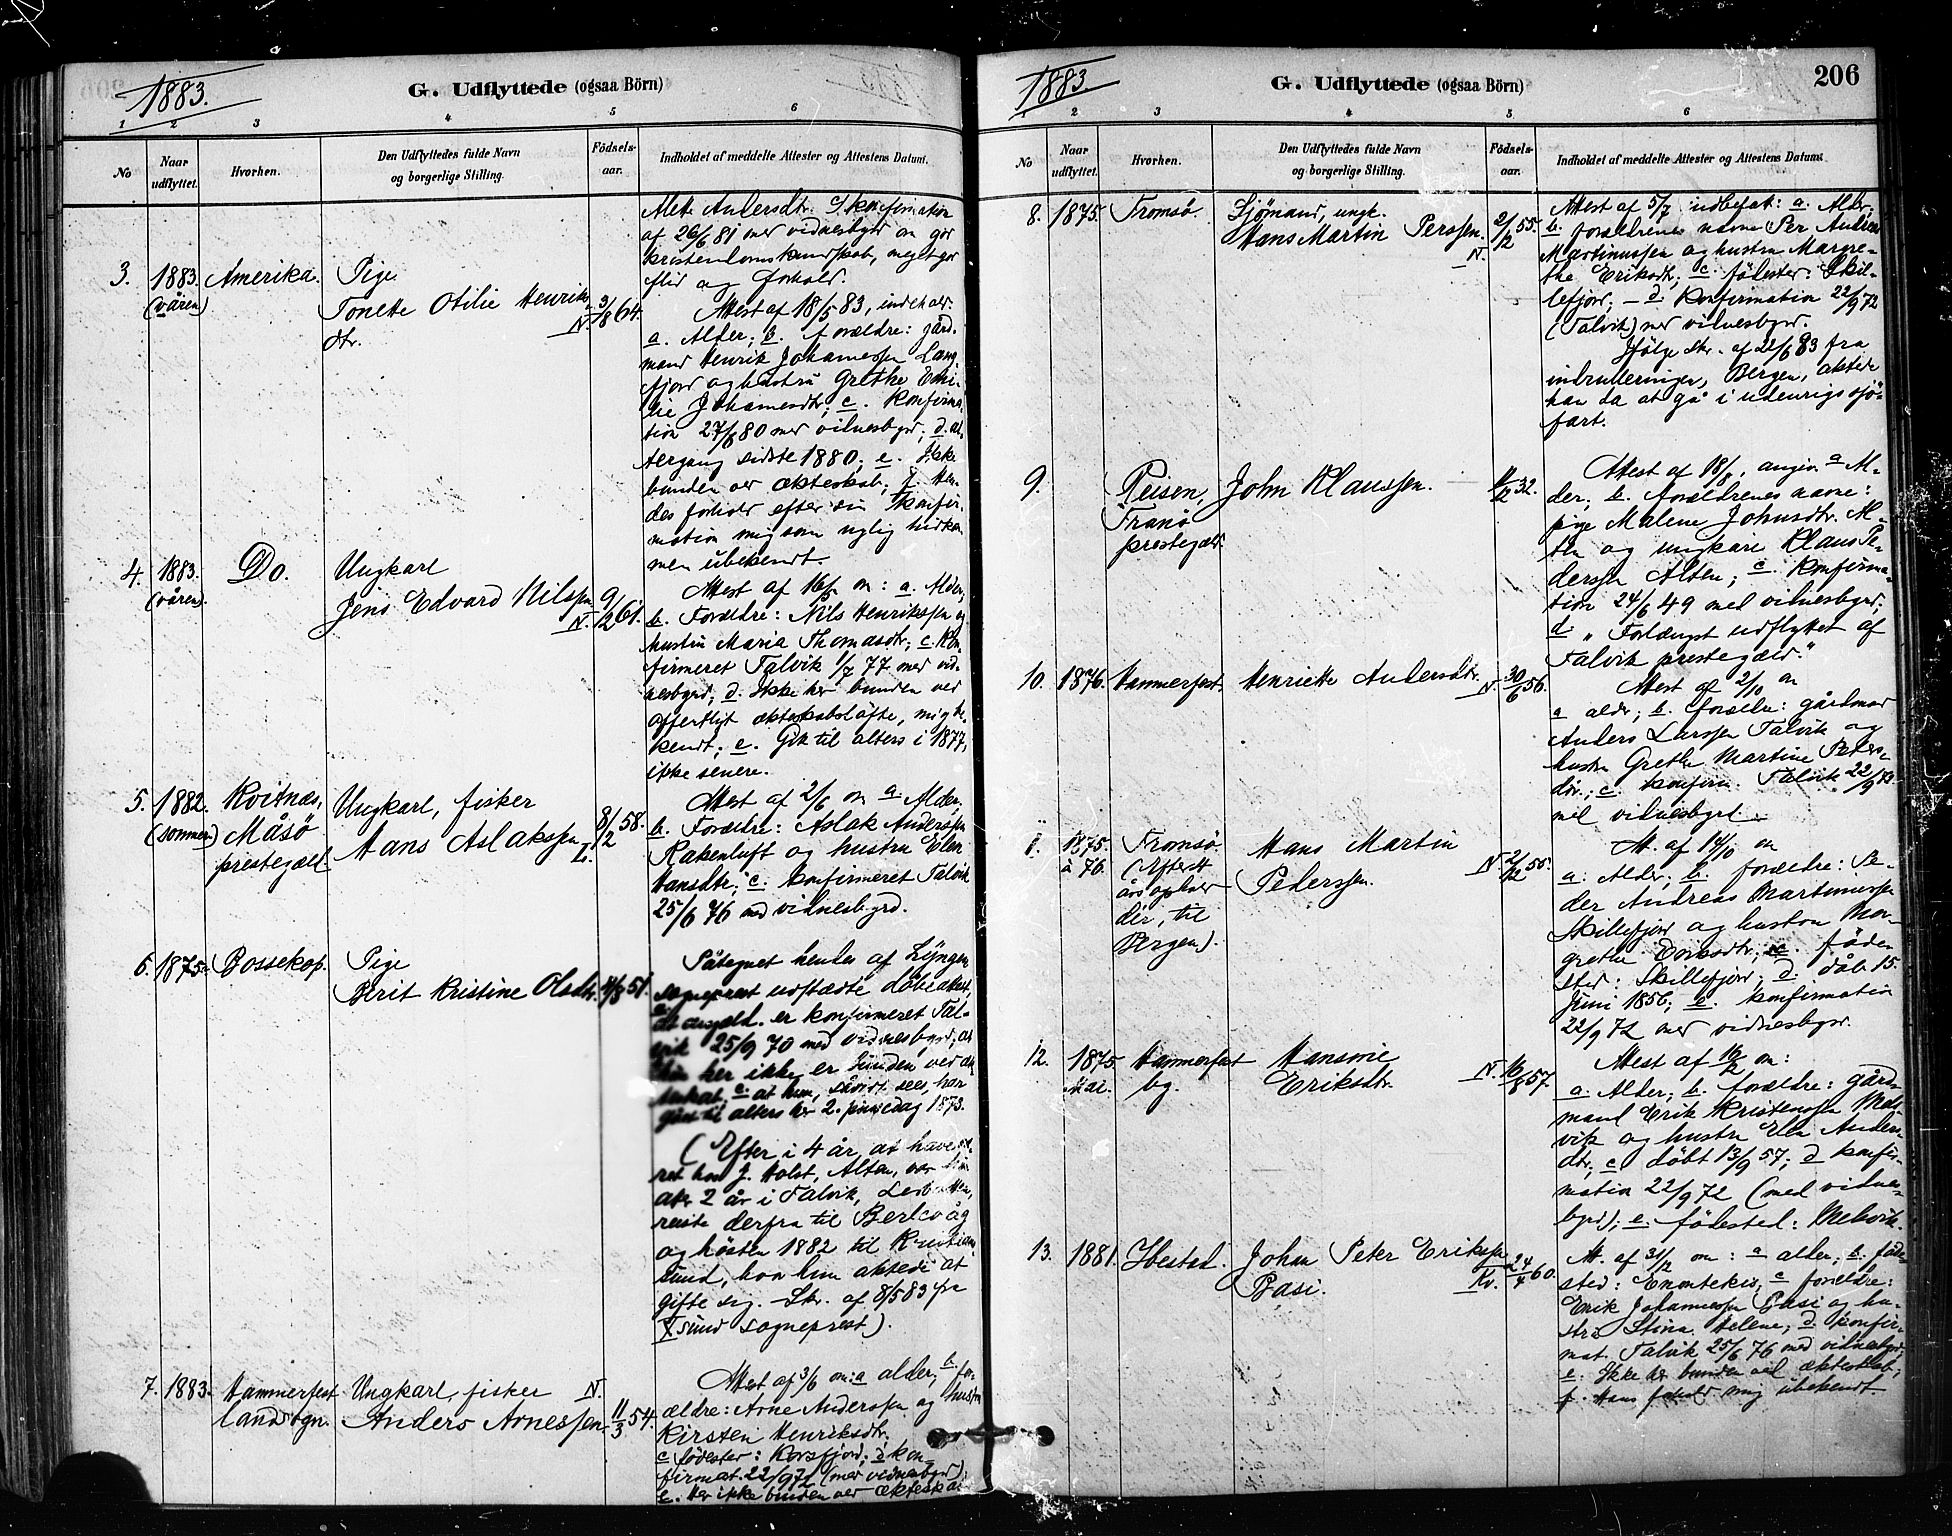 1883.
G. Udflyttede (ogsaa Börn)
1 2 3 4 5 6
No
Naar udflyttet.
Hvorhen.
Den Udflyttedes fulde Navn og borgerlige Stilling.
Födsels-aar.
Indholdet af meddelte Attester og Attestens Datum.
Mette Andersdtr. konfirmation
af 26/6 81 med vidnesbyrd om god
kristendomskundskab, meget god
flid og forhold.
3. 1883. (våren) Amerika. Pige
Tonette Otilie Henriks-
dtr. N. 3/8 64.
Attest af 18/5 83, indehold.
a. Alder; b. forældre: gård-
mand Henrik Johannessen Lang-
fjord og hustru Grethe Emi-
lie Johannesdtr; c. Konfirma-
tion 27/6 80 med vidnesbyrd; d. al-
tergang sidste 1880; e. Ikke
bunden ved ækteskab; f. Hen-
des forhold efter sin konfir-
mation mig som nylig hidkom-
men ubekendt.
4. 1883. (våren). Do. Ungkarl
Jens Edvard Nilsen N. 9/12 61.
Attest af 16/5 om: a. Alder,
b. Forældre: Nils Henriksen og
hustru Maria Thomasdtr; c. Kon-
firmeret Talvik 1/7 77 med vid-
nesbyrd; d. Ikke her bunden ved
offentligt ækteskabsløfte, mig be-
kendt; e. Gik til alters i 1877,
ikke senere.
5. 1882. (sommer) Kvitnæs, Måsö prestegæld. Ungkarl, fisker
Hans Aslaksen L. 8/2 58.
Attest af 2/6 om a. Alder,
b. Forældre: Aslak Andersen
Rakenluft og hustru Elen
Hansdtr; c. konfirmeret Talvik
25/6 76 med vidnesbyrd.
6. 1875. Bossekop. Pige
Berit Kristine Olsdtr. 51.
Påtegnet hendes af Lyngen
sogneprest udstædte dåbsattest,
er konfirmeret Tal-
vik 25/9 70 med vidnesbyrd; at
hun her ikke er bunden ved æk-
teskab; c. at hun, såvidt sees, har
gået til alters her 2. pinsedag 1873.
(Efter i 4 år at have
hos J. Holst, Alten, var hun
2 år i Talvik,
reiste derfra til Berlevåg
og høsten 1882 til Kristian-
sund, hvor hun aktede at
gifte sig. – Skr. af 8/5 83 fra
Xsund sogneprest).
7. 1883. Hammerfest landsogn. Ungkarl, fisker N.
Anders Arnessen 11/3 54.
Attest af 3/6 om: a alder; b. for-
ældre: Arne Andersen og hustru
Kirsten Henriksdtr.
c. fødested: Korsfjord; d. kon-
firmat. 22/9 72 (med vidnesbyrd);
e. Her ikke bunden ved ækteskab
1883.
G. Udflyttede (ogsaa Börn)
206
1 2 3 4 5 6
No
Naar udflyttet.
Hvorhen.
Den Udflyttedes fulde Navn og borgerlige Stilling.
Födsels-aar.
Indholdet af meddelte Attester og Attestens Datum.
8. 1875. Tromsö. Sjömand, ungk.
Hans Martin Perssen. N. 2/12 55.
Attest af 5/7 indbefat: a. Alder,
b. forældrenes navne Per Andreas
Martinussen og hustru Margre-
the Eriksdtr; c. fødested: Skil-
lefjord; – d. Konfirmation 22/9 72
(Talvik) med vidnesbyrd.
Ifølge skr. af 22/6 83 fra
indrulleringen, Bergen, aktede
han da at gå i udenrigs sjö-
fart.
9. Reisen, Tranö prestegæld. John Klaussen. 32.
Attest af 18/8, angiv. a Al-
der; b. forældrenes navne:
pige Malene Johnsdtr. Al-
ten og ungkarl Klaus Pe-
dersen Alten; c. Konfirma-
tion 24/6 49 med vidnesbyrd;
d. "Forlængst udflyttet af
Talvik prestegæld."
10. 1876. Hammerfest. Henriette Andersdtr. N. 30/6 56.
Attest af 2/10 om
a alder; b. forældre: gårdmand
Anders Larssen Talvik og
hustru Grethe Martine Peders-
dtr.; c. konfirm. Talvik 22/9 72
med vidnesbyrd.
1875 à 76. Tromsö. (Efter et års ophold der, til Bergen). Hans Martin
Pederssen. N. 2/12 55.
At. af 14/10 om
a. Alder; b. forældre: Pe-
der Andreas Martinussen
Skillefjord og hustru Mar-
grethe Eriksdtr; c. föde-
sted: Skillefjord; d. dåb 15.
Juni 1856; e. konfirmation
22/9 72 med vidnesbyrd.
12. 1875 Mai. Hammerfest by. Hansine
Eriksdtr. N. 16/8 57.
Attest af 16/12 om:
a. Alder; b. forældre: gård-
mand Erik Kristensen Mels-
vik og hustru Elen Anders-
dtr; c. döbt 13/9 57; d. konfir-
mation 22/9 72 (med vidnes-
byrd); e. födested: Melsvik.
13. 1881. Ibestad. Johan Peter Eriksen
Basi. Kv. 24/4 60.
At. af 31/12 om: a alder; b. föde-
sted: Enontekis; c. forældre:
Erik Johannessen Basi og hu-
stru Stina Helene; d. konfir-
mat. Talvik 25/6 76 med vidnesbyrd;
e. Ikke her bunden ved ækteskab;
f. Hans forhold mig ubekendt